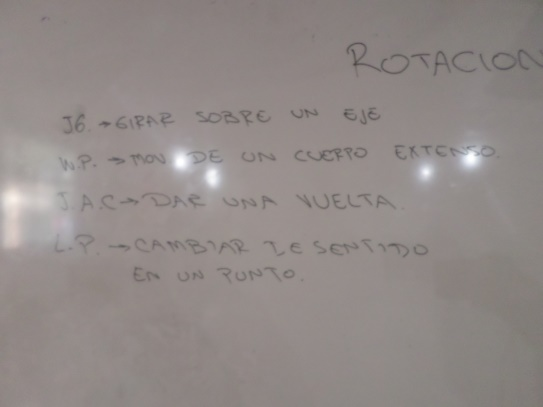 ROTACION
J6. → GIRAR SOBRE UN EJE
W.P. → MOV DE UN CUERPO EXTENSO.
J.A.C → DAR UNA VUELTA.
L.P. → CAMBIAR DE SENTIDO
EN UN PUNTO.